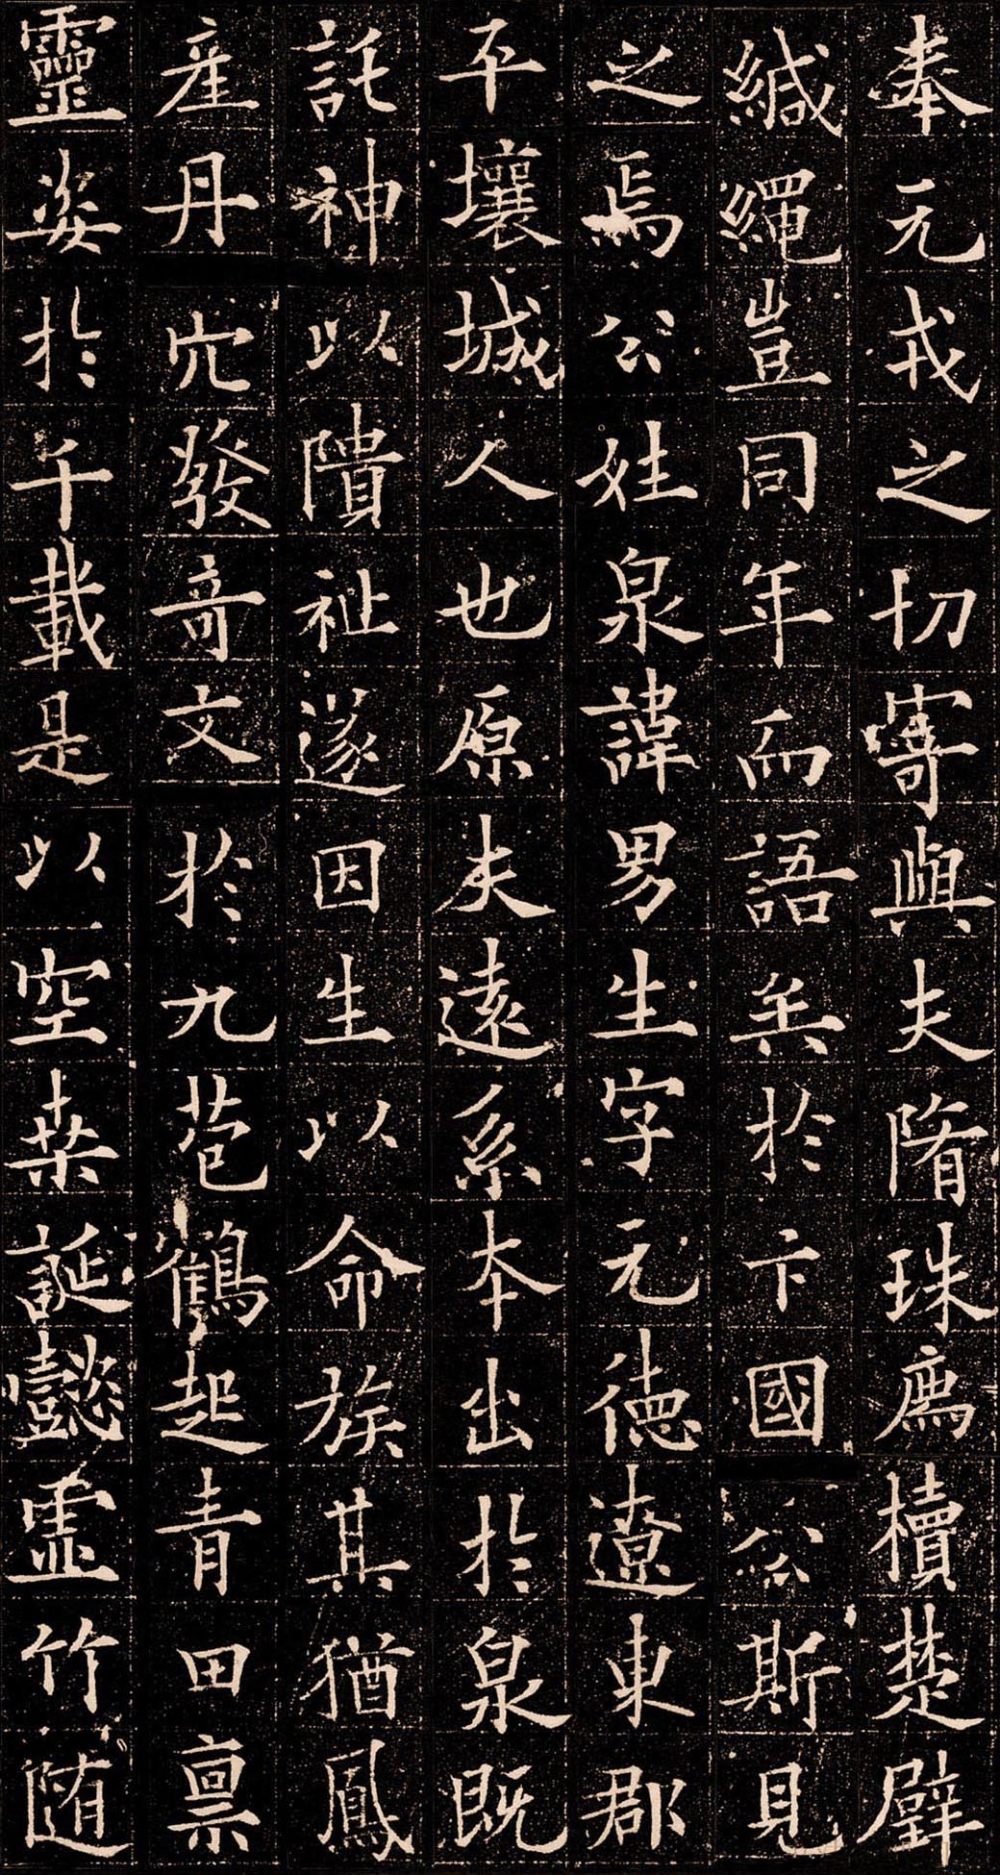 奉元戎之切寄與夫隋珠廌櫝楚璧
緘繩豈同年而語矣於卞國公斯見
之焉公姓泉諱男生字元德遼東郡
平壤城人也原夫遠系本出於泉既
託神以隤祉遂因生以命族其猶鳳
產丹穴發奇文於九苞鶴起青田禀
靈姿於千載是以空桑誕懿虛竹随